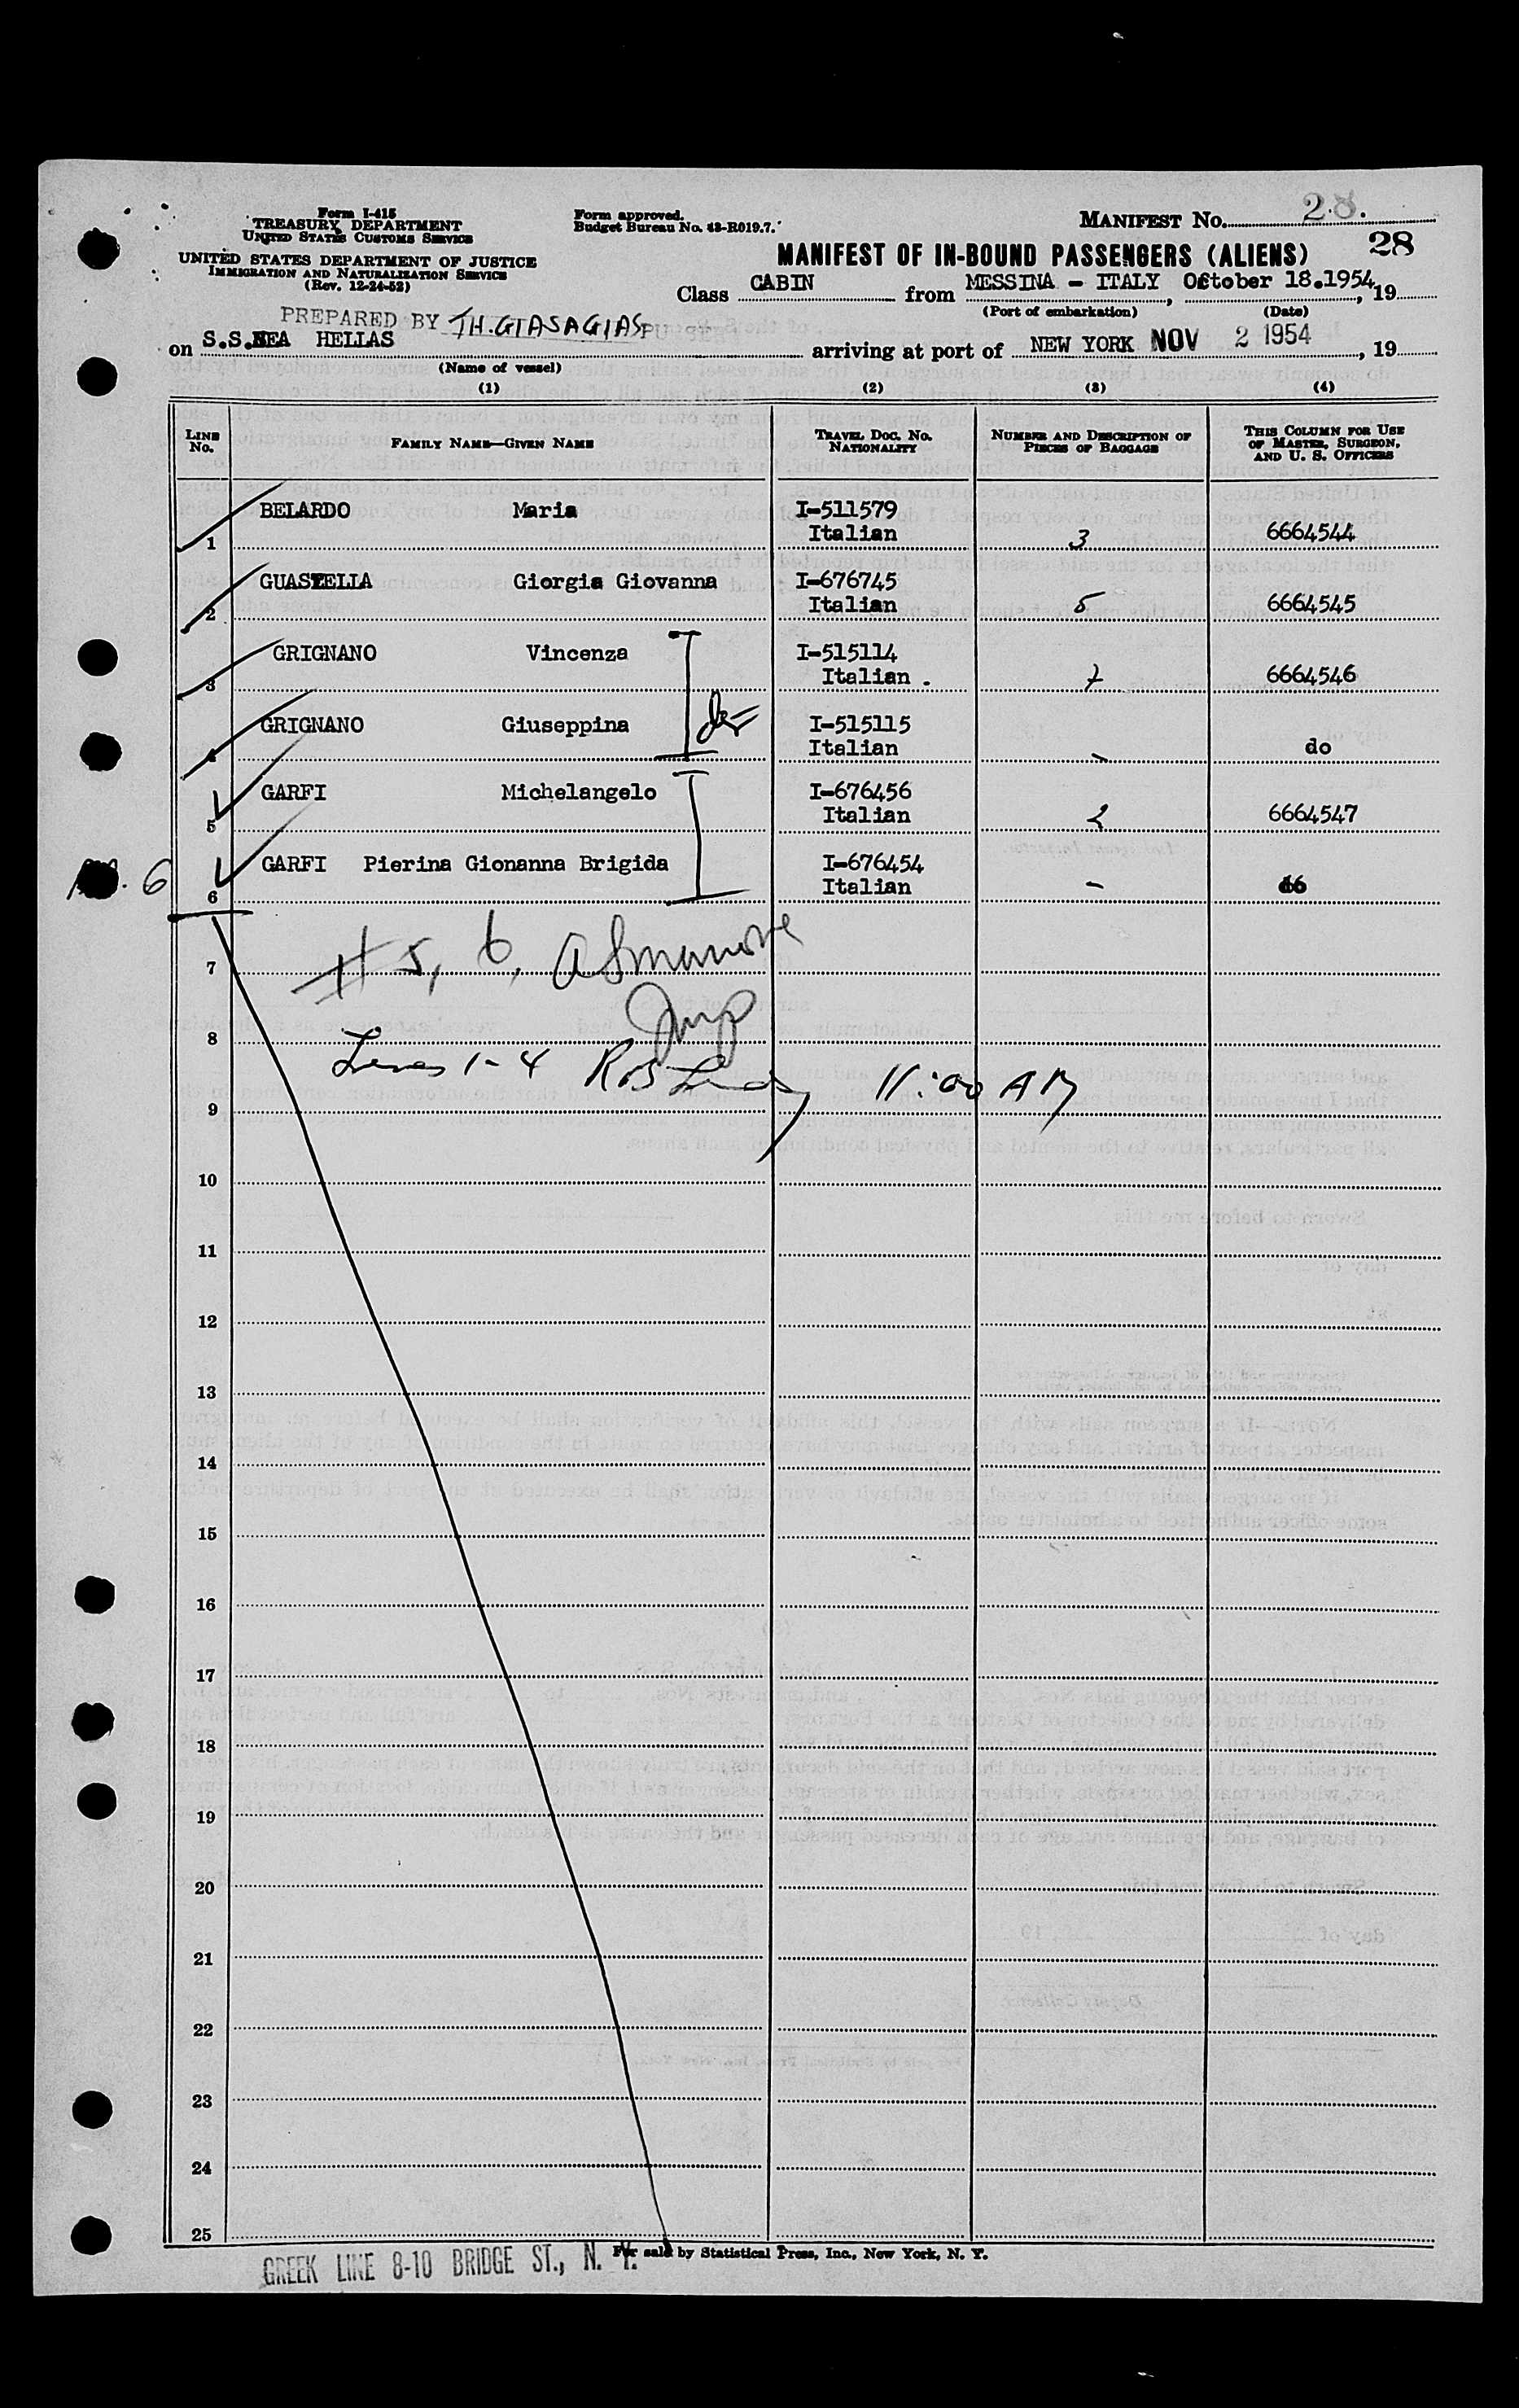 Form I-415
TREASURY DEPARTMENT
UNITED STATES CUSTOMS SERVICE
UNITED STATES DEPARTMENT OF JUSTICE
IMMIGRATION AND NATURALIZATION SERVICE
(Rev. 12-24-52)
Form approved.
Budget Bureau No. 43-R019.7.
MANIFEST No. 28.
28
MANIFEST OF IN-BOUND PASSENGERS (ALIENS)
Class CABIN from MESSINA - ITALY, October 18.1954, 19
(Port of embarkation) (Date)
PREPARED BY TH. GIASAGIAS
on S.S. NEA HELLAS arriving at port of NEW YORK NOV 2 1954, 19
(Name of vessel)
(1) (2) (3) (4)
LINE No. FAMILY NAME—GIVEN NAME TRAVEL DOC. NO. NATIONALITY NUMBER AND DESCRIPTION OF PIECES OF BAGGAGE THIS COLUMN FOR USE OF MASTER, SURGEON, AND U. S. OFFICERS
BELARDO Maria I-511579
1 Italian 3 6664544
GUASTELLA Giorgia Giovanna I-676745
2 Italian 5 6664545
GRIGNANO Vincenza I-515114
3 Italian . 7 6664546
GRIGNANO Giuseppina I-515115
4 Italian - do
GARFI Michelangelo I-676456
5 Italian 2 6664547
GARFI Pierina Gionanna Brigida I-676454
6 Italian - do
6
7 # 5, 6,
8
Lines 1-4 11:00 AM
9
10
11
12
13
14
15
16
17
18
19
20
21
22
23
24
25
For sale by Statistical Press, Inc., New York, N. Y.
GREEK LINE 8-10 BRIDGE ST., N. Y.